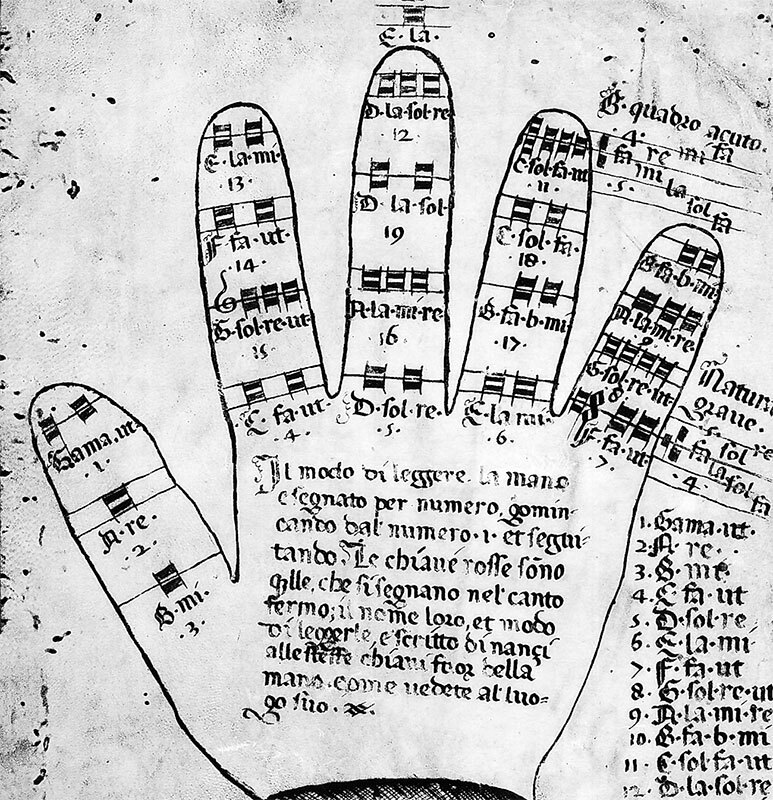 E. la.
D. la. sol. re
12.
E. la. mi.
.13.
F. fa. ut.
.14.
G. sol. re. ut
15
C. fa. ut.
.4.
D. la. sol.
19
A. la. mi. re
16
D. sol. re.
.5.
C. sol. fa. ut
11.
C. sol. fa.
18
B. fa. b. mi
17.
E. la. mi.
.6.
B. fa. b. mi
A. la. mi. re
9
G. sol. re. ut
8
F. fa. ut.
7.
B. quadro acuto.
.4. re mi fa
fa mi la sol fa
.5.
Natura
grave.
.5. sol re
fa la sol fa
.4.
Gama. ut.
.1.
A. re.
.2.
B. mi.
.3.
Il modo di leggere la mano
e segnato per numero, comin-
cando dal numero .1. et segui-
tando. Le chiave rosse sono
qlle, che si segnano nel canto
fermo; il nome loro, et modo
di leggerle, e scritto dinanci
alle chiavi for della
mano. come vedete al luo-
go suo.
1. Gama. ut.
2. A. re.
3. B. mi
4. C fa ut
5. D. sol. re
6. E. la. mi
7. F. fa. ut
8. G. sol. re. ut
9. A. la. mi. re
10. B. fa. b. mi
11. C. sol. fa. ut
12. D. la. sol. re